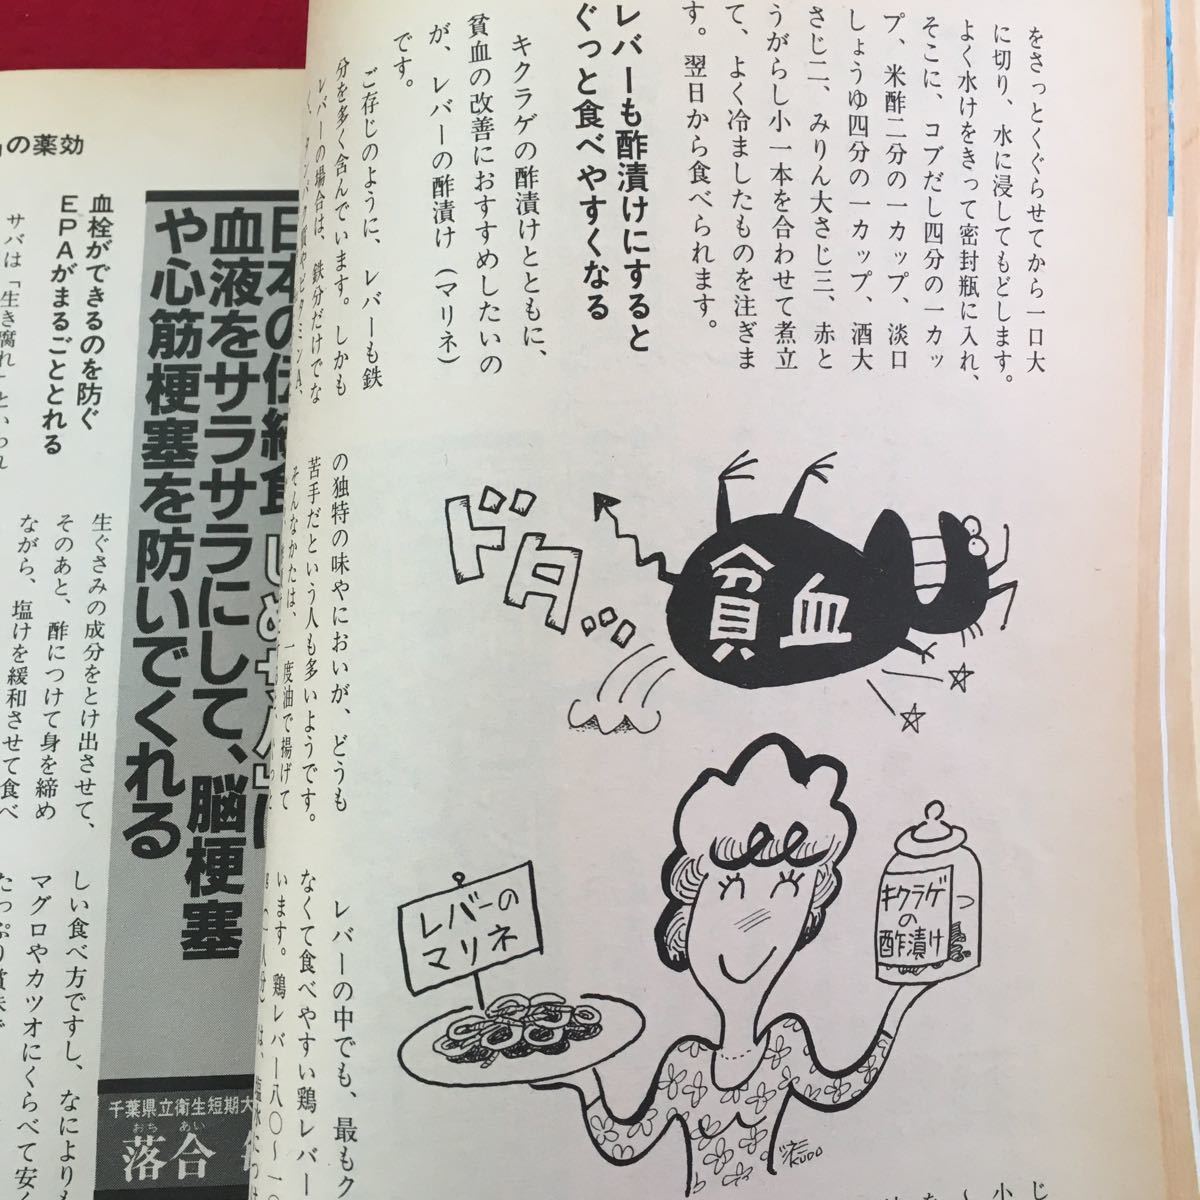 をさっとくぐらせてから一口大
に切り、水に浸してもどします。
よく水けをきって密封瓶に入れ、
そこに、コブだし四分の一カッ
プ、米酢二分の一カップ、淡口
しょうゆ四分の一カップ、酒大
さじ二、みりん大さじ三、赤と
うがらし小一本を合わせて煮立
て、よく冷ましたものを注ぎま
す。翌日から食べられます。
レバーも酢漬けにすると
ぐっと食べやすくなる
キクラゲの酢漬けとともに、
貧血の改善におすすめしたいの
が、レバーの酢漬け(マリネ)
です。
ご存じのように、レバーも鉄
分を多く含んでいます。しかも
レバーの場合は、鉄分だけでな
ドタッ
貧血
レバーの
マリネ
キクラゲ
の
酢漬け
KUDO
の独特の味やにおいが、どうも
苦手だという人も多いようです。
そんなかたは、一度油で揚げて
レバーの中でも、最もク
なくて食べやすい鶏レバー
います。鶏レバー八〇〜一〇
の薬効
日本の伝統食
血液をサラサラにして、脳梗塞
や心筋梗塞を防いでくれる
千葉県立衛生短期大
おち あい
落合
血栓ができるのを防ぐ
EPAがまるごととれる
サバは「生き腐れ」といわれ
生ぐさみの成分をとけ出させて、
そのあと、酢につけて身を締め
ながら、塩けを緩和させて食べ
しい食べ方ですし、なによりも
マグロやカツオにくらべて安く